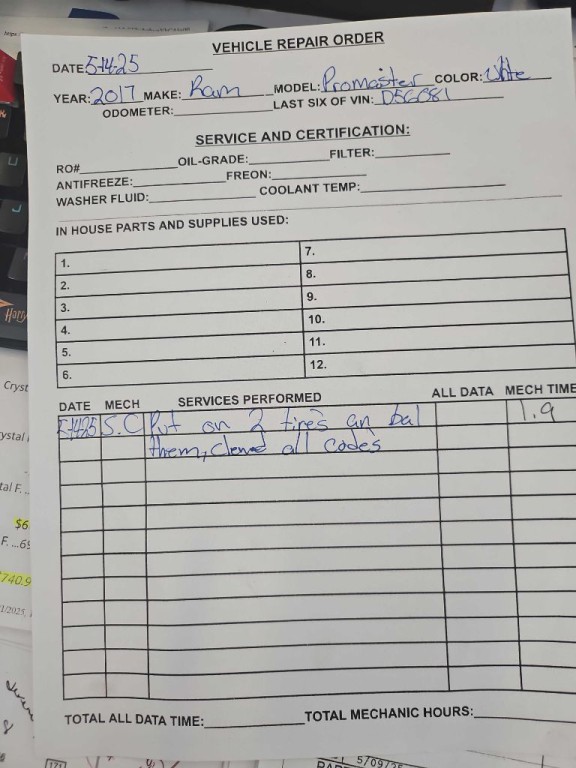 VEHICLE REPAIR ORDER
DATE 5-14-25
YEAR: 2017 MAKE: Ram MODEL: Promaster COLOR: White
ODOMETER: LAST SIX OF VIN: D56081
SERVICE AND CERTIFICATION:
RO# OIL-GRADE: FILTER:
ANTIFREEZE: FREON:
WASHER FLUID: COOLANT TEMP:
IN HOUSE PARTS AND SUPPLIES USED:
1. 7.
2. 8.
3. 9.
4. 10.
5. 11.
6. 12.
DATE MECH SERVICES PERFORMED ALL DATA MECH TIME
5-14-25 S.C Put on 2 tires an bal 1.9
them, clened all codes
TOTAL ALL DATA TIME: TOTAL MECHANIC HOURS:
Harry
Cryst
ystal
tal F...
$6
F. ...69
740.9
1/2025,
171
5/09/25